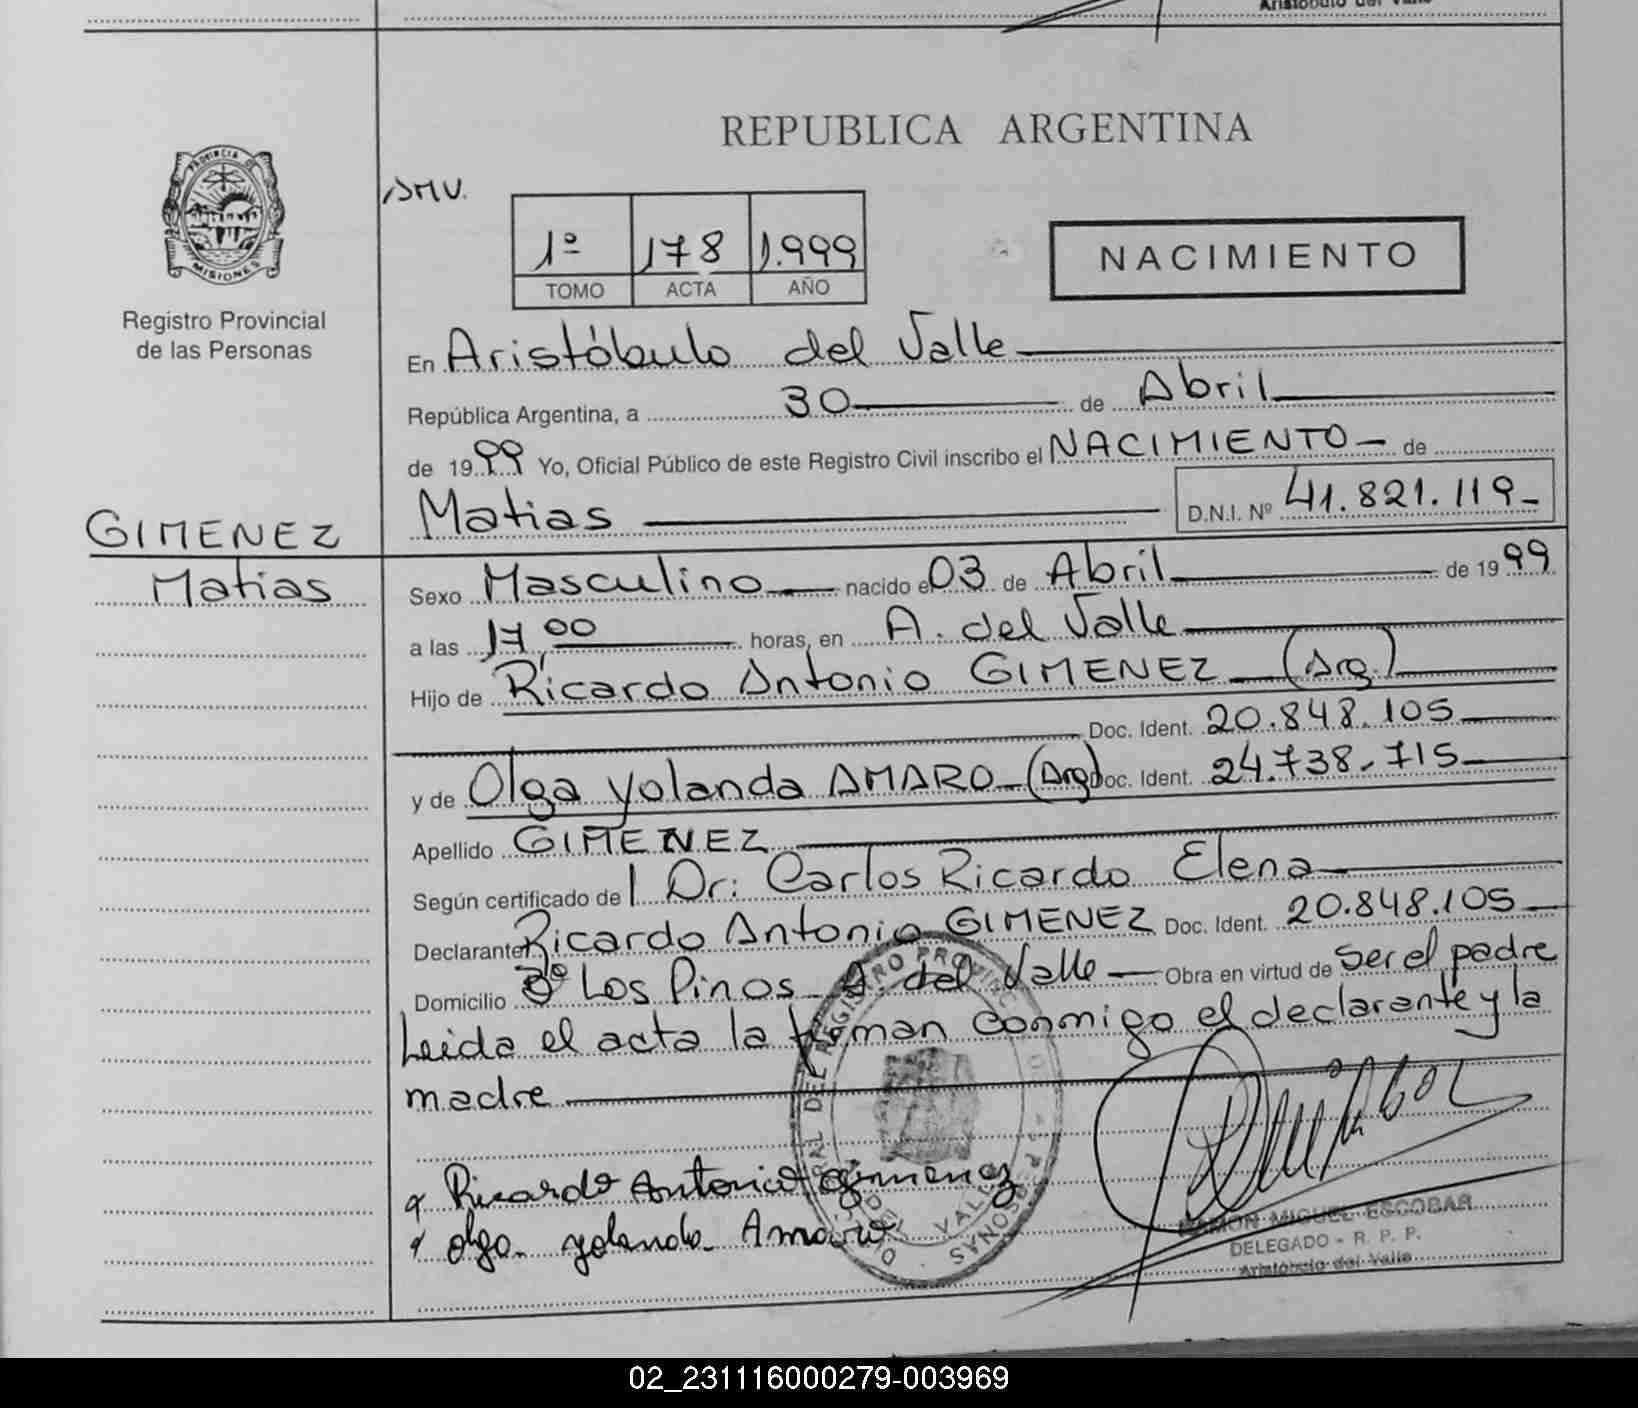 Aristóbulo del Valle
REPUBLICA ARGENTINA
PROVINCIA DE
MISIONES
Registro Provincial
de las Personas
SMV.
1º 178 1.999
TOMO ACTA AÑO
NACIMIENTO
En Aristóbulo del Valle
República Argentina, a 30 de Abril
de 1999 Yo, Oficial Público de este Registro Civil inscribo el NACIMIENTO de
Matias D.N.I. Nº 41.821.119
GIMENEZ
Matias
Sexo Masculino nacido el 03 de Abril de 1999
a las 17,00 horas, en A. del Valle
Hijo de Ricardo Antonio GIMENEZ (Arg.)
Doc. Ident. 20.848.105
y de Olga Yolanda AMARO (Arg) Doc. Ident. 24.738.715
Apellido GIMENEZ
Según certificado del Dr: Carlos Ricardo Elena
Declarante Ricardo Antonio GIMENEZ Doc. Ident. 20.848.105
Domicilio Bº Los Pinos A. del Valle Obra en virtud de ser el padre
Leida el acta la firman conmigo el declarante y la
madre
Ricardo Antonio Gimenez
Olga Yolanda Amaro
RAMON MIGUEL ESCOBAR
DELEGADO - R. P. P.
Aristóbulo del Valle
02_231116000279-003969